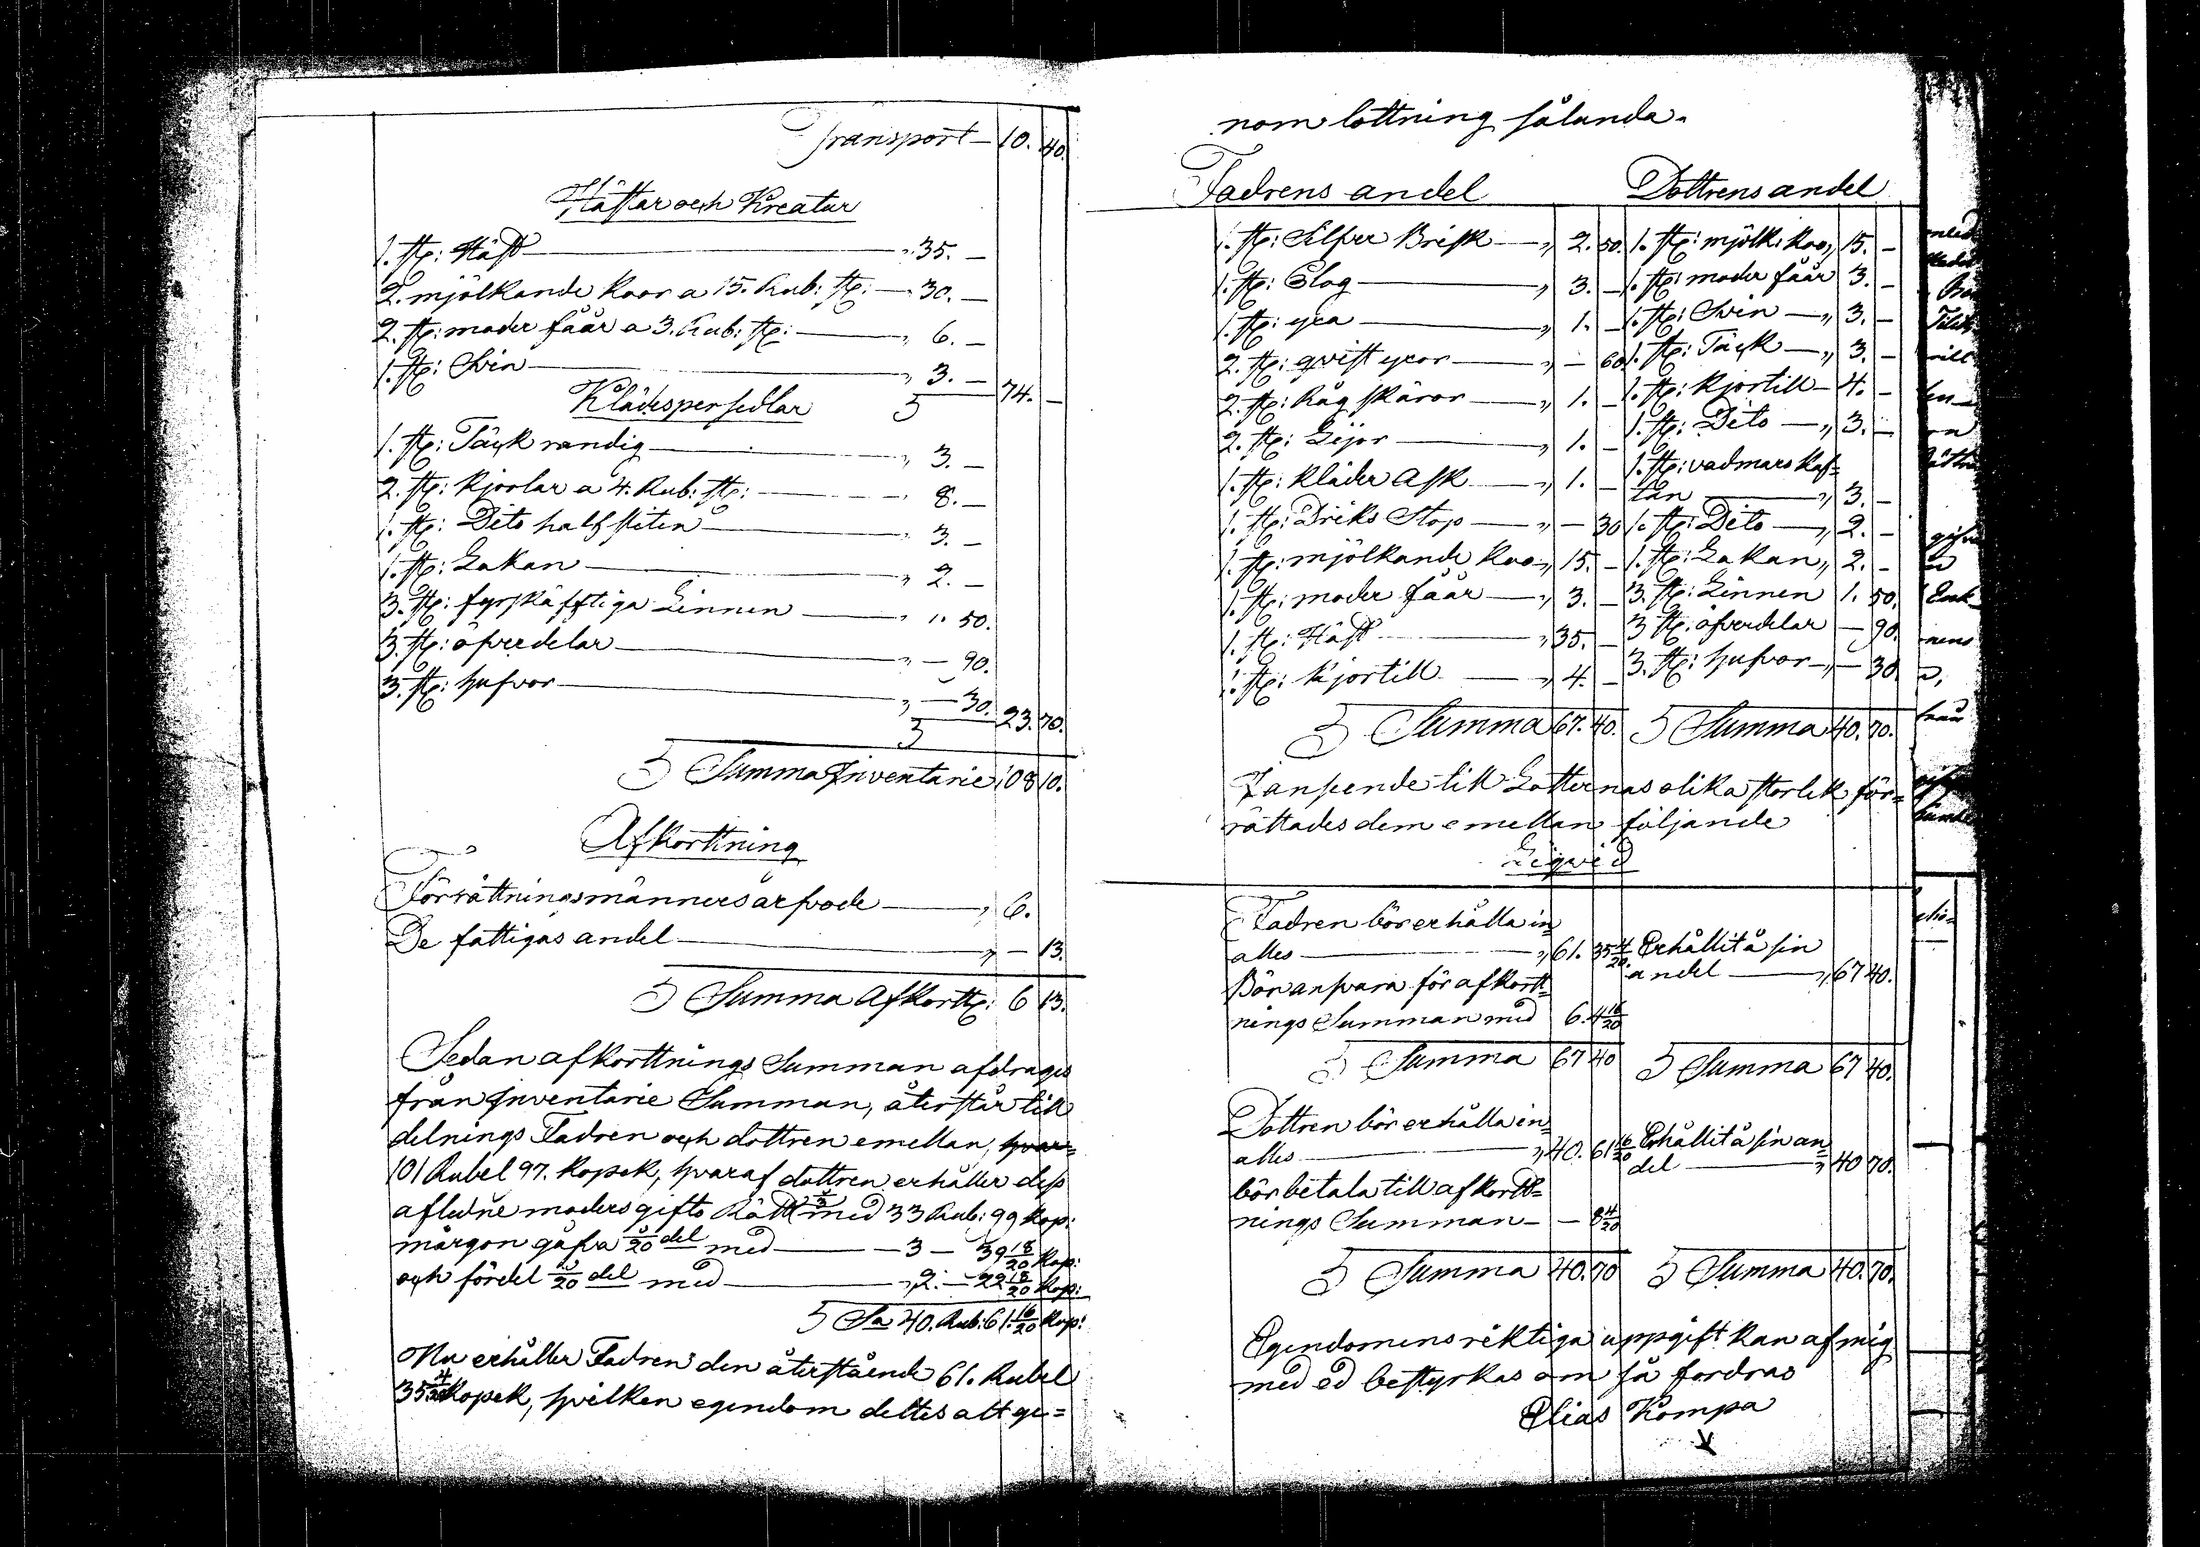 Transport — 10. 40.
Hästar och Kreatur
1. st: Häst — „ 35. —
2. mjölkande koor a 15. Rub: st: — 30. —
2. st: moder fåår a 3. Rub: st: — „ 6. —
1. st: Svin — „ 3. — 74. —
Klädespersedlar
1. st: Täck randig — „ 3. —
2. st: kjorlar a 4. Rub: st: — „ 8. —
1. st: Dito halfsliten — „ 3. —
1. st: Lakan — „ 2. —
3. st: fyrskäfftiga Linnen — „ 1. 50.
3. st: öfverdelar — „ — 90.
3. st: hufvor — „ — 30. 23. 70.
Summa Inventarie 108 10.
Afkorttning
Förrättningsmänners arfvode — „ 6.
De fattigas andel — „ — 13.
Summa Afkorttn: 6 13.
Sedan afkorttnings Summan afdrages
från Inventarie Summan, återstår till
delnings Fadren och dottren emellan, hvar=
101 Rubel 97. Kopek, hvaraf dottren erhåller dess
aflednē moders gifto Rätt med 33 Rub: 99 Kop:
márgon gåfva /20 del med — 3 — 39 18/20 Kop:
och fördel /20 del med — „ 2. — 22 18/20 Kop:
Sa 40. Rub: 61. 16/20 Kop:
Nu erhåller Fadren den återstående 61. Rubel
35 4/20 Kopek, hvilken egendom deltes alt ge=
nom lottning sålunda.
Fadrens andel Dottrens andel
1. st: Silfver Brisk — „ 2. 50. 1. st: mjölk: koo „ 15. —
1. st: Slog — „ 3. — 1. st: moder fåår 3. —
1. st: yxa — „ 1. — 1. st: Svin — „ 3. —
2. st: qvist yxor — „ — 60. 1. st: Täck — „ 3. —
2. st: Råg skäror — „ 1. — 1. st: kjortill — 4. —
2. st: Lijor — „ 1. — 1. st: Dito — „ 3. —
1. st: kläder Ask — „ 1. — 1. st: vadmars Kaf=
tan — „ 3. —
1. st: Driks Stop — „ — 30 1. st: Dito — „ 2. —
1. st: mjölkande Koo „ 15. — 1. st: Lakan „ 2. —
1. st: moder fåår — „ 3. — 3. st: Linnen 1. 50.
1. st: Häst — „ 35. — 3 st: öfverdelar — 90.
1. st: kjortill — „ 4. — 3. st: hufvor — „ — 30
Summa 67. 40. Summa 40. 70.
I anseende till Lotternas olika storlek för=
rättades dem emellan följande
Liqvid
Fadren bör erhålla in
alles — „ 61. 35 4/20. Erhållit å sin
andel — „ 67 40.
Bör ansvara för afkortt=
nings Summan med 6. 4 16/20
Summa 67 40 Summa 67 40.
Dottren bör erhålla in=
alles — „ 40. 61 16/20 Erhållit å sin an=
del — „ 40 70.
bör betala till afkortt=
nings Summan — — 8 4/20
Summa 40. 70 Summa 40. 70.
Egendomens riktiga uppgift kan af mig
med ed bestyrkas om så fordras
Elias Kompa